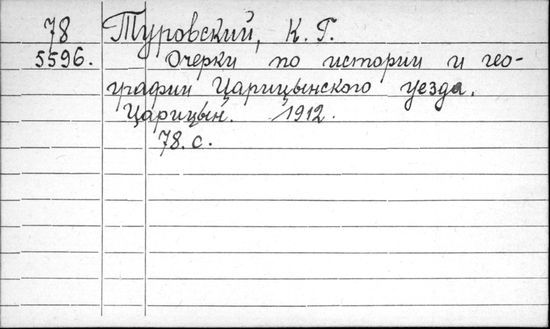 78 Туровский, К. Г.
5596. Очерки по истории и гео-
графии Царицынского уезда.
Царицын. 1912.
78. с.